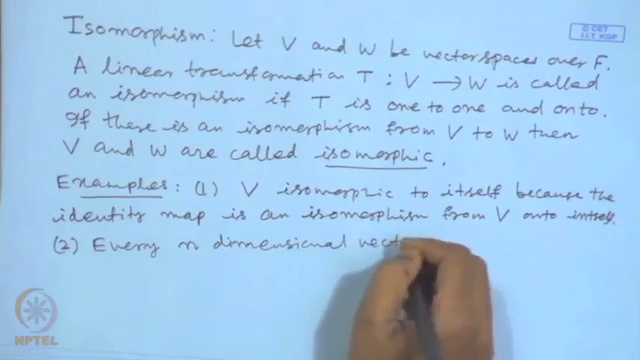 © CET
I.I.T. KGP
Isomorphism: Let V and W be vector spaces over F.
A linear transformation T : V → W is called
an isomorphism if T is one to one and onto.
If there is an isomorphism from V to W then
V and W are called isomorphic.
Examples: (1) V isomorphic to itself because the
identity map is an isomorphism from V onto intself.
(2) Every n dimensional vect
NPTEL